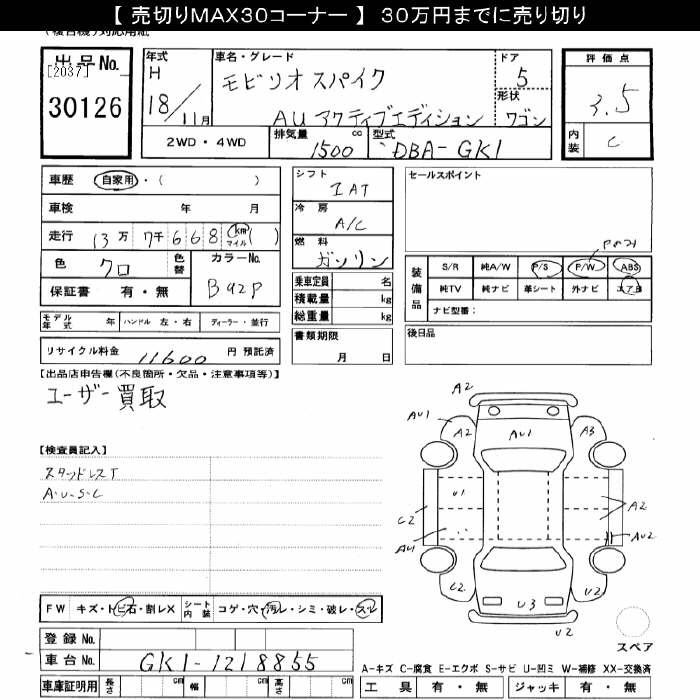 【 売切りMAX30コーナー 】 30万円までに売り切り
出品No.
[2037]
30126
年式
H
18/11月
車名・グレード
モビリオ スパイク
AU アクティブエディション
ドア
5
形状
ワゴン
評価点
3.5
内装
C
2WD・4WD
排気量 cc
1500
型式
DBA-GK1
車歴 自家用・( )
車検 年 月
走行 13万 7千 668 km マイル ( )
色 クロ 色替 カラーNo.
B92P
保証書 有・無
シフト
IAT
冷房
A/C
燃料
ガソリン
乗車定員 名
積載量 kg
総重量 kg
セールスポイント
Pのみ
装備品
S/R 純A/W P/S P/W ABS
純TV 純ナビ 革シート 外ナビ エアB
ナビ型番:
モデル年式 年 ハンドル 左・右 ディーラー・並行
リサイクル料金 11600 円 預託済
書類期限
月 日
後日品
【出品店申告欄(不良箇所・欠品・注意事項等)】
ユーザー買取
【検査員記入】
スタッドレスT
A・U・S・C
A2
AU1
A2
AU1
A3
U1
C2
A2
AU1
AU2
C2
U3
U2
U2
スペア
FW キズ・トビ石・割レX シート内装 コゲ・穴・汚レ・シミ・破レ・スレ
登録No.
車台No. GK1-1218855
車庫証明用 長さ cm 幅 cm 高さ cm
A-キズ C-腐食 E-エクボ S-サビ U-凹ミ W-補修 XX-交換済
工具 有・無 ジャッキ 有・無